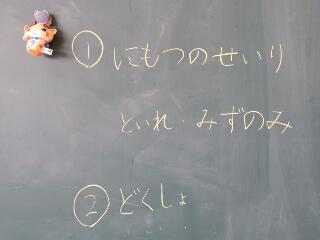 ① にもつのせいり
といれ・みずのみ
② どくしょ